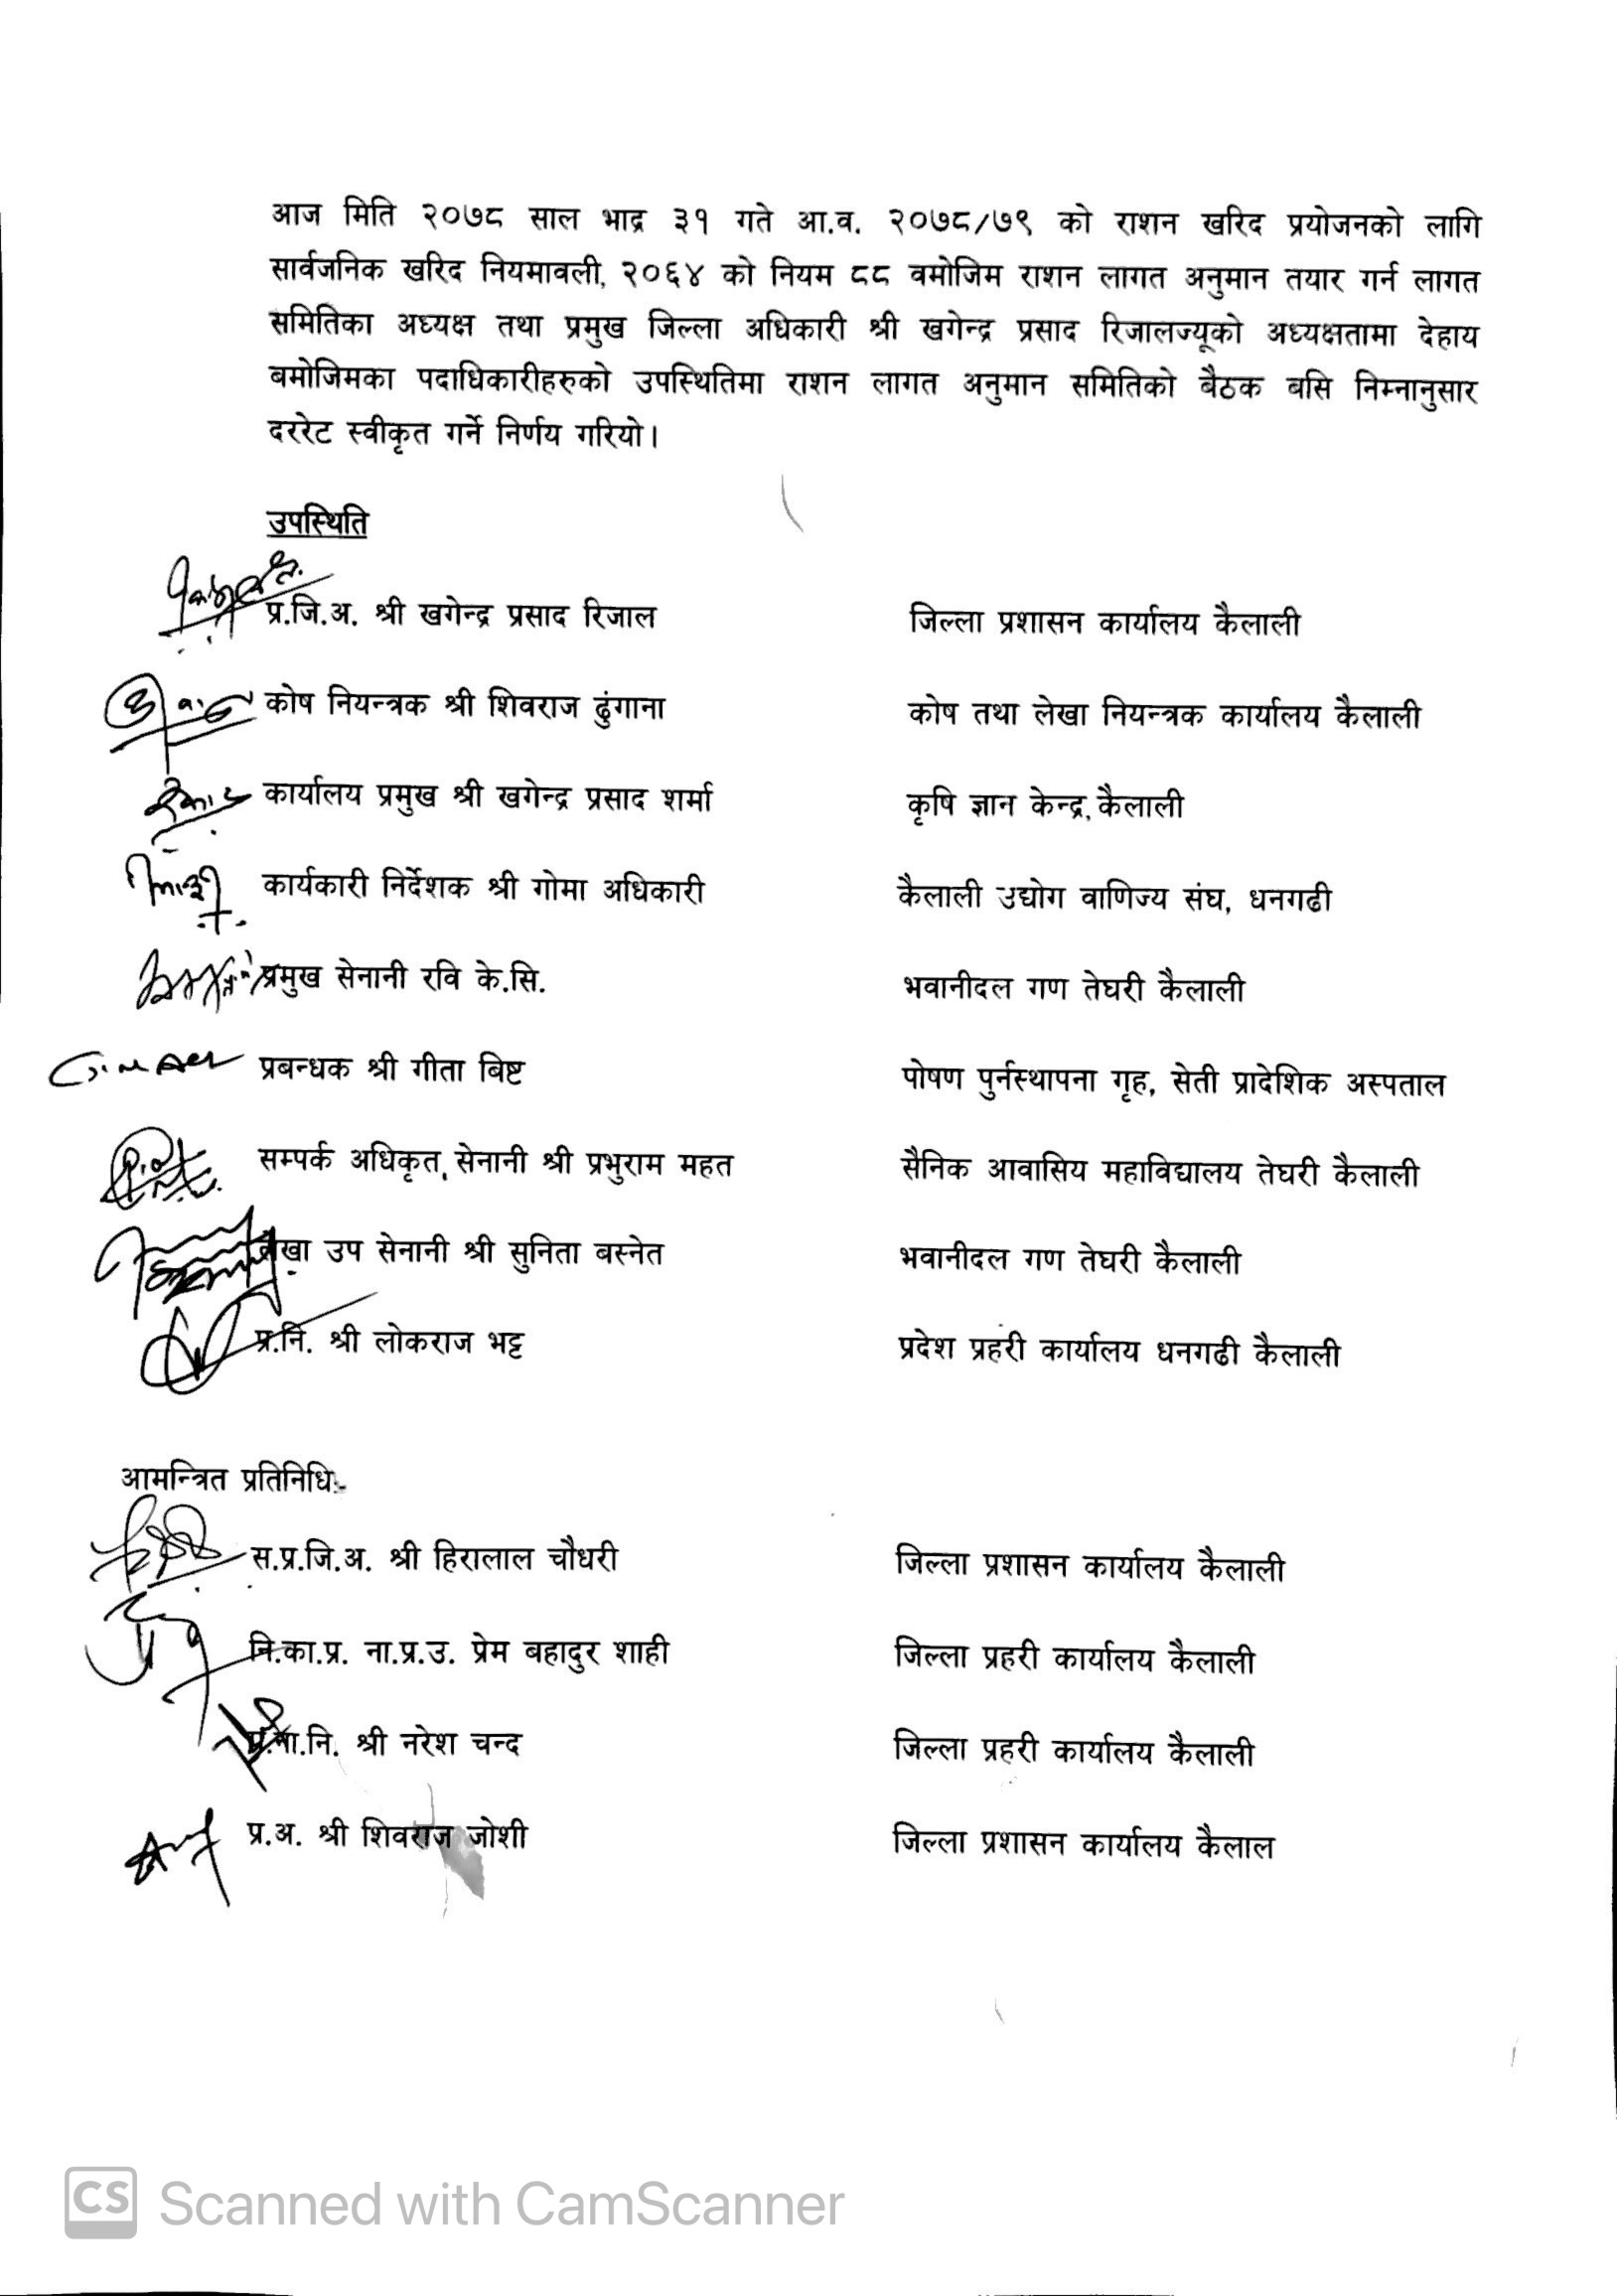 आज मिति २०७८ साल भाद्र ३१ गते आ.व. २०७८/७९ को राशन खरिद प्रयोजनको लागि
सार्वजनिक खरिद नियमावली, २०६४ को नियम ८८ वमोजिम राशन लागत अनुमान तयार गर्न लागत
समितिका अध्यक्ष तथा प्रमुख जिल्ला अधिकारी श्री खगेन्द्र प्रसाद रिजालज्यूको अध्यक्षतामा देहाय
बमोजिमका पदाधिकारीहरुको उपस्थितिमा राशन लागत अनुमान समितिको बैठक बसि निम्नानुसार
दररेट स्वीकृत गर्ने निर्णय गरियो।
उपस्थिति
प्र.जि.अ. श्री खगेन्द्र प्रसाद रिजाल जिल्ला प्रशासन कार्यालय कैलाली
कोष नियन्त्रक श्री शिवराज ढुंगाना कोष तथा लेखा नियन्त्रक कार्यालय कैलाली
कार्यालय प्रमुख श्री खगेन्द्र प्रसाद शर्मा कृषि ज्ञान केन्द्र, कैलाली
कार्यकारी निर्देशक श्री गोमा अधिकारी कैलाली उद्योग वाणिज्य संघ, धनगढी
प्रमुख सेनानी रवि के.सि. भवानीदल गण तेघरी कैलाली
प्रबन्धक श्री गीता बिष्ट पोषण पुर्नस्थापना गृह, सेती प्रादेशिक अस्पताल
सम्पर्क अधिकृत, सेनानी श्री प्रभुराम महत सैनिक आवासिय महाविद्यालय तेघरी कैलाली
लेखा उप सेनानी श्री सुनिता बस्नेत भवानीदल गण तेघरी कैलाली
प्र.नि. श्री लोकराज भट्ट प्रदेश प्रहरी कार्यालय धनगढी कैलाली
आमन्त्रित प्रतिनिधिः-
स.प्र.जि.अ. श्री हिरालाल चौधरी जिल्ला प्रशासन कार्यालय कैलाली
नि.का.प्र. ना.प्र.उ. प्रेम बहादुर शाही जिल्ला प्रहरी कार्यालय कैलाली
प्र.ना.नि. श्री नरेश चन्द जिल्ला प्रहरी कार्यालय कैलाली
प्र.अ. श्री शिवराज जोशी जिल्ला प्रशासन कार्यालय कैलाल
CS Scanned with CamScanner